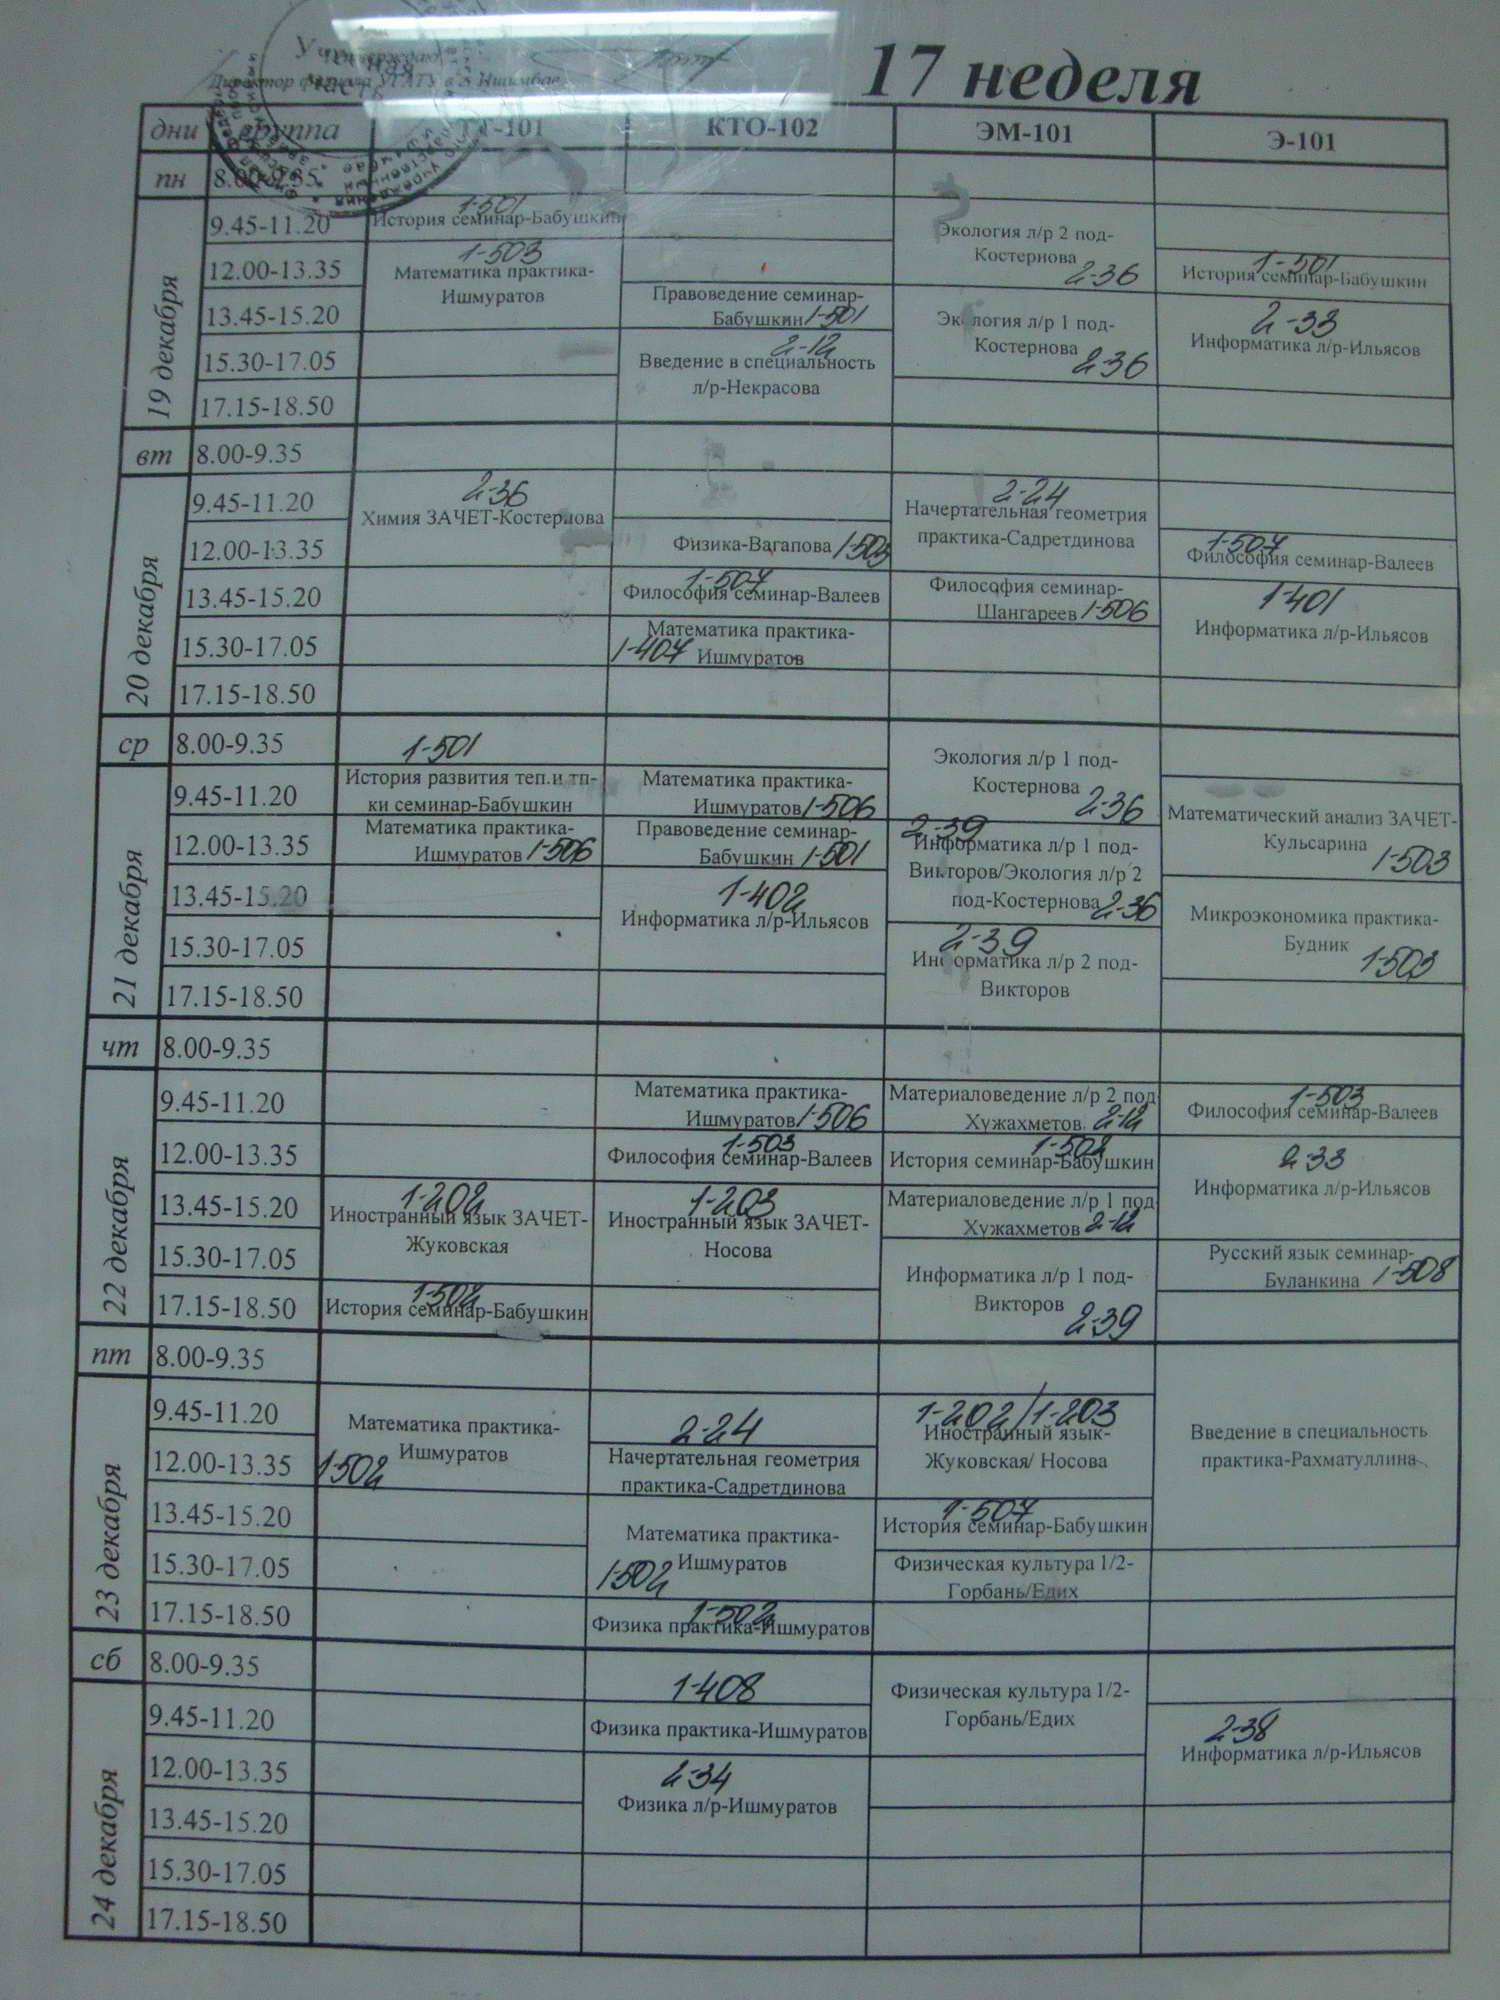 17 неделя
Директор филиала УГАТУ в г. Ишимбае
Учебная
часть
дни группа ТТ-101 КТО-102 ЭМ-101 Э-101
пн 8.00-9.35
19 декабря
9.45-11.20
1-501
История семинар-Бабушкин
Экология л/р 2 под-
Костернова
2-36
12.00-13.35
1-503
Математика практика-
Ишмуратов
1-501
История семинар-Бабушкин
13.45-15.20
Правоведение семинар-
Бабушкин 1-501
Экология л/р 1 под-
Костернова
2-36
2-33
Информатика л/р-Ильясов
15.30-17.05
2-12
Введение в специальность
л/р-Некрасова
17.15-18.50
вт 8.00-9.35
20 декабря
9.45-11.20
2-36
Химия ЗАЧЕТ-Костернова
2-24
Начертательная геометрия
практика-Садретдинова
12.00-13.35
Физика-Вагапова 1-503
1-507
Философия семинар-Валеев
13.45-15.20
1-507
Философия семинар-Валеев
Философия семинар-
Шангареев 1-506
1-401
Информатика л/р-Ильясов
15.30-17.05
Математика практика-
1-407 Ишмуратов
17.15-18.50
ср 8.00-9.35
21 декабря
1-501
Экология л/р 1 под-
Костернова
2-36
9.45-11.20
История развития теп.и тп-
ки семинар-Бабушкин
Математика практика-
Ишмуратов 1-506
Математический анализ ЗАЧЕТ-
Кульсарина
1-503
12.00-13.35
Математика практика-
Ишмуратов 1-506
Правоведение семинар-
Бабушкин 1-501
2-39
Информатика л/р 1 под-
Викторов/Экология л/р 2
под-Костернова 2-36
13.45-15.20
1-402
Информатика л/р-Ильясов
Микроэкономика практика-
Будник
1-503
15.30-17.05
2-39
Информатика л/р 2 под-
Викторов
17.15-18.50
чт 8.00-9.35
22 декабря
9.45-11.20
Математика практика-
Ишмуратов 1-506
Материаловедение л/р 2 под
Хужахметов 2-12
1-503
Философия семинар-Валеев
12.00-13.35
1-503
Философия семинар-Валеев
1-502
История семинар-Бабушкин
2-33
Информатика л/р-Ильясов
13.45-15.20
1-202
Иностранный язык ЗАЧЕТ-
Жуковская
1-203
Иностранный язык ЗАЧЕТ-
Носова
Материаловедение л/р 1 под
Хужахметов 2-12
15.30-17.05
Информатика л/р 1 под-
Викторов
2-39
Русский язык семинар-
Буланкина 1-508
17.15-18.50
1-502
История семинар-Бабушкин
пт 8.00-9.35
23 декабря
Введение в специальность
практика-Рахматуллина
9.45-11.20
Математика практика-
Ишмуратов
1-502
2-24
1-202/1-203
Иностранный язык-
Жуковская/ Носова
12.00-13.35
Начертательная геометрия
практика-Садретдинова
13.45-15.20
Математика практика-
Ишмуратов
1-502
1-507
История семинар-Бабушкин
15.30-17.05
Физическая культура 1/2-
Горбань/Едих
17.15-18.50
1-502
Физика практика-Ишмуратов
сб 8.00-9.35
24 декабря
1-408
Физическая культура 1/2-
Горбань/Едих
9.45-11.20
Физика практика-Ишмуратов
2-38
Информатика л/р-Ильясов
12.00-13.35
2-34
Физика л/р-Ишмуратов
13.45-15.20
15.30-17.05
17.15-18.50